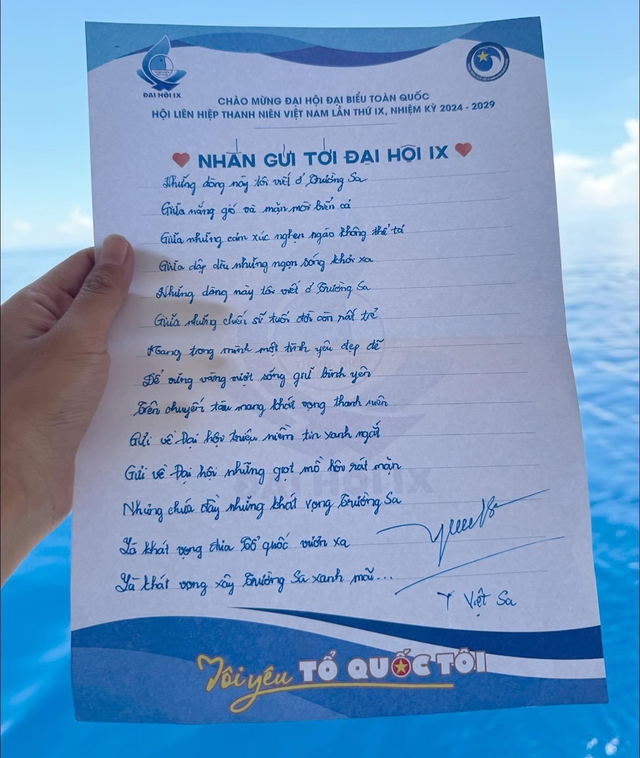 ĐẠI HỘI IX
CHÀO MỪNG ĐẠI HỘI ĐẠI BIỂU TOÀN QUỐC
HỘI LIÊN HIỆP THANH NIÊN VIỆT NAM LẦN THỨ IX, NHIỆM KỲ 2024 - 2029
NHẮN GỬI TỚI ĐẠI HỘI IX
Những dòng này tôi viết ở Trường Sa
Giữa nắng gió và mặn mòi biển cả
Giữa những cảm xúc nghẹn ngào không thể tả
Giữa dập dìu những ngọn sóng khơi xa
Những dòng này tôi viết ở Trường Sa
Giữa những chiến sĩ tuổi đời còn rất trẻ
Mang trong mình một tình yêu đẹp đẽ
Để vững vàng vượt sóng giữ bình yên
Trên chuyến tàu mang khát vọng thanh niên
Gửi về Đại hội triệu niềm tin xanh ngát
Gửi về Đại hội những giọt mồ hôi rát mặn
Nhưng chứa đầy những khát vọng Trường Sa
Là khát vọng đưa Tổ quốc vươn xa
Là khát vọng xây Trường Sa xanh mãi...
Y Việt Sa
ĐẠI HỘI IX
Tôi yêu TỔ QUỐC TÔI